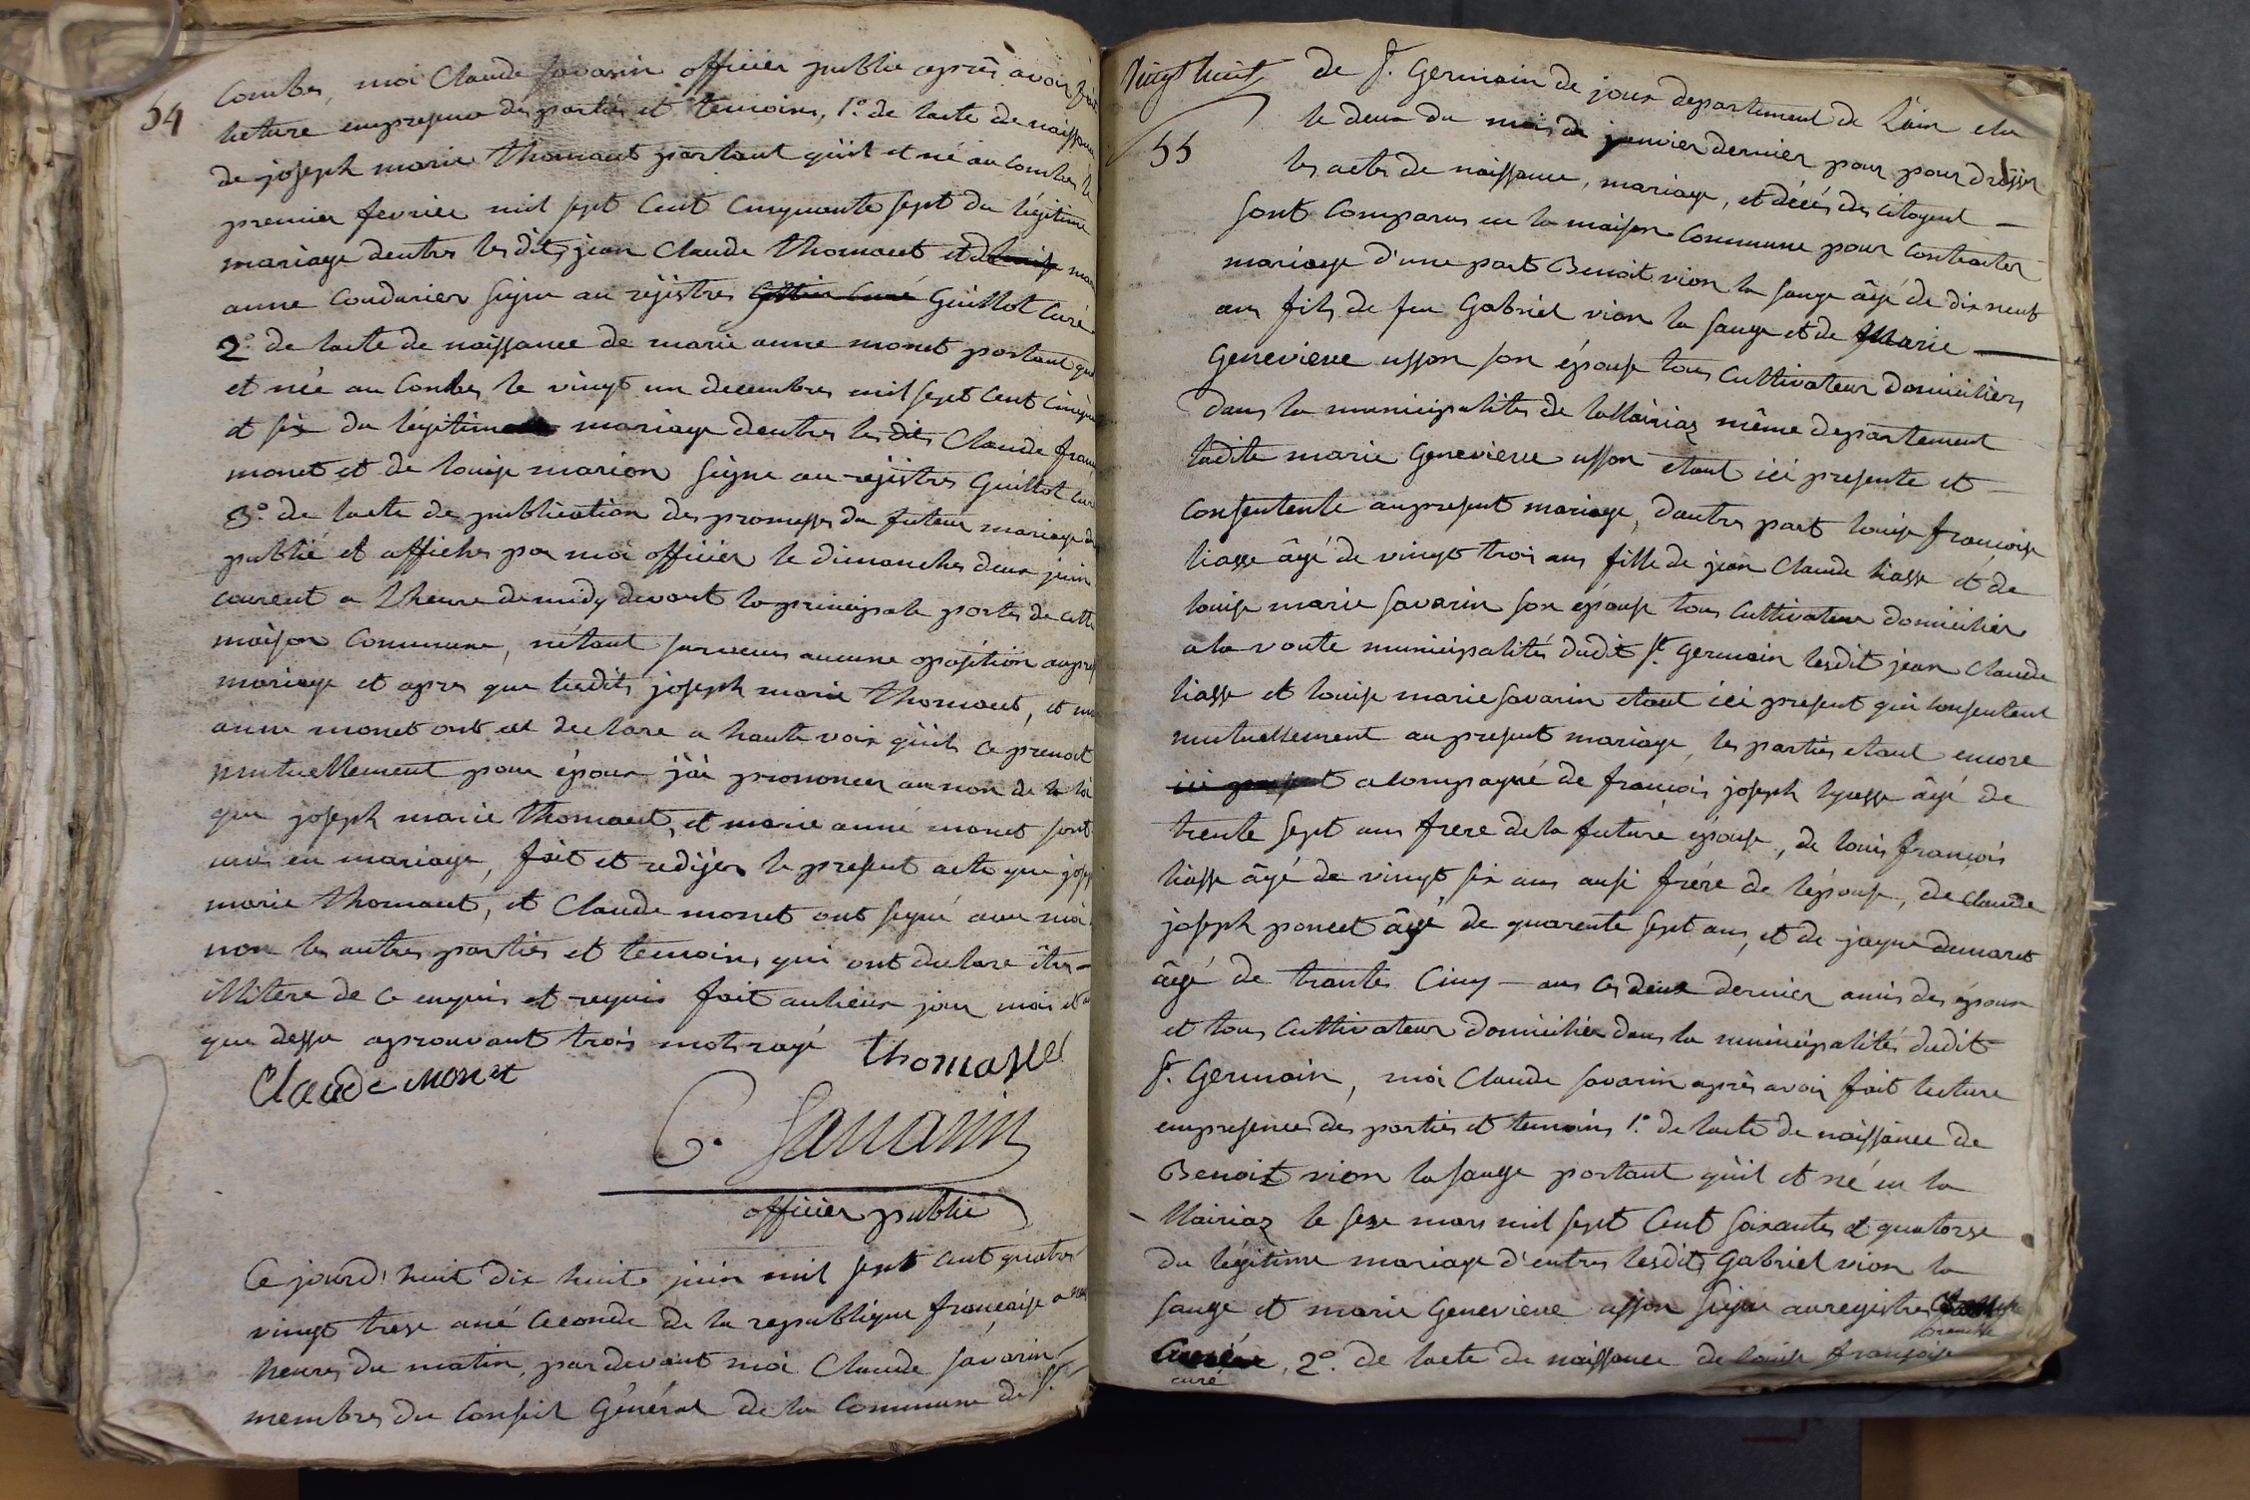 54
Combes, moi Claude Savarin officier public après avoir fait
lecture empresence des parties et temoins, 1.° de lacte de naissance
de joseph marie thomaset portant qu'il et né au Combes le
premier fevrier mil sept Cent Cinquante sept du légitime
mariage dentres les dits jean Claude thomaset et de marie
anne Coudurier signe au rejistres Guillot Curé
2.° de lacte de naissance de marie anne monet portant que
et née au Combes le vingt un decembres mil sept Cent Cinqu
et six du légitime mariage dentres les dits Claude franç
monet et de louise marion signe au rejistres Guillot Curé
3.° de lacte de publication des promesses du futeur mariage
publié et affiches par moi officier le dimanches deux juin
courent a lheure de midy devant la principale portes de cette
maison Commune, n'étant survenus aucune oposition aupres
mariage et apres que lesdits joseph marie thomaset, et marie
anne monet ont declare a haute voix qu'ils ce prenoit
mutuellement pour époux j'ai prononcer au non de la loi
que joseph marie thomaset, et marie anne monet sont
unis en mariage, fait et redijer le present acte que joseph
marie thomaset, et Claude monet ont signé avec moi
non les autres parties et temoins qui ont declare êtres
illitere de ce enquis et requis fait au lieux jour mois et an
que dessu aprouvant trois mots rayé thomaset
Claude monet
C. Savarin
officier public
Ce jourd'huit dix huit juin mil sept cent quatres
vingt trese ané Ceconde de la republique françaisse a
heures du matin, par devant moi Claude Savarin
membres du Conseil Général de la Commune de St.
vingt huit
55
de St. Germain de joux departement de Lain elu
le deux du mois de janvier dernier pour pour dresser
les actes de naissance, mariage, et décés des citoyent
sont Comparus en la maison Commune pour Contracter
mariage d'une part Benoit vion la sauge âgé de dix neuf
ans fils de feu Gabriel vion la sauge et de Marie
Genevieve usson son épouse tous Cultivateur domiciliers
dans la municipalités de lallairiaz même departement
ladite marie Genevieve usson etant ici presente et
Consentente aupresent mariage, dautres part louise françoise
liasse âgé de vingt trois ans fille de jean Claude liasse et de
louise marie Savarin son épouse tous Cultivateur domicilier
a la voute municipalités dudit St. Germain lesdit jean Claude
liasse et louise marie Savarin etant ici present qui Consentent
mutuellement au present mariage, les parties etant encore
ici present acompagné de françois joseph lyasse âgé de
trente sept ans frere de la future épouse, de louis françois
liasse âgé de vingt six ans ausi frére de lépouse, de Claude
joseph poncet âgé de quarente sept ans, et de jayme dumaret
âgé de trante Cinq ans Ces deux dernier amis des époux
et tous Cultivateur domicilier dans la municipalités dudit
St. Germain, moi Claude Savarin après avoir fait lecture
empresence des parties et temoins 1.° de lacte de naissance de
Benoit vion la sauge portant qu'il et né en la
llairiaz le sese mars mil sept Cent soixantes et quatorse
du légitime mariage d'entres lesdits Gabriel vion la
sauge et marie Genevieve usson signe auregistres
curé, 2.° de lacte de naissance de louise françoise